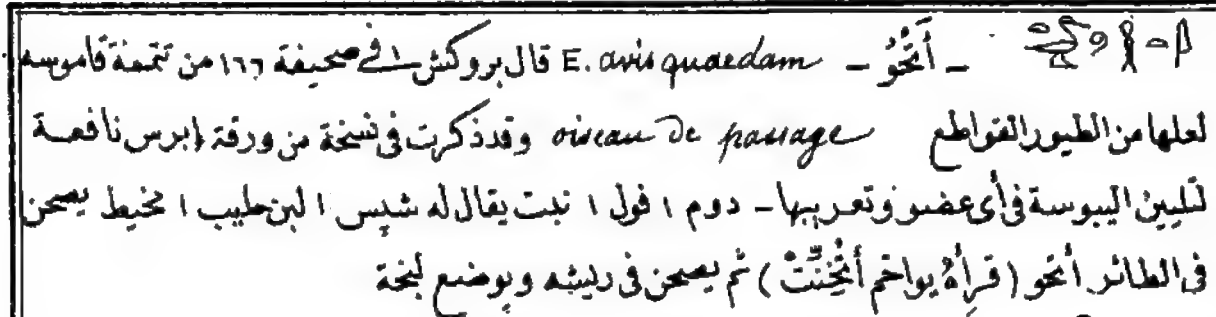 ـ أَتَّخُو ـ E. avis quaedam قال بروكش في صحيفة ١٦٦ من تتمة قاموسه
لعلها من الطيور القواطع oiseau de passage وقد ذكرت في نسخة من ورقة إبرس نافعة
لتليين اليبوسة في أى عضو وتعريبها ـ دوم ١ فول ١ نبت يقال له شبس ١ لبن حليب ١ مخيط يصحن
فى الطائر أتخو (قرأهُ يواخم أَتْخِنَنْتْ) ثم يصحن فى ريشه ويوضع لبخة